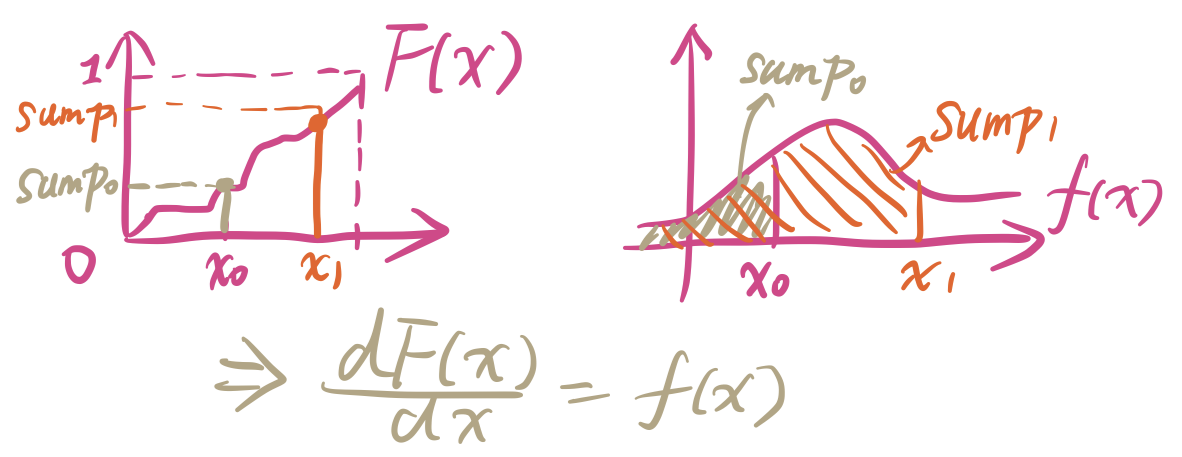 1
F(x)
sump₁
sump₀
0
x₀
x₁
sump₀
sump₁
f(x)
x₀
x₁
⇒ dF(x)/dx = f(x)